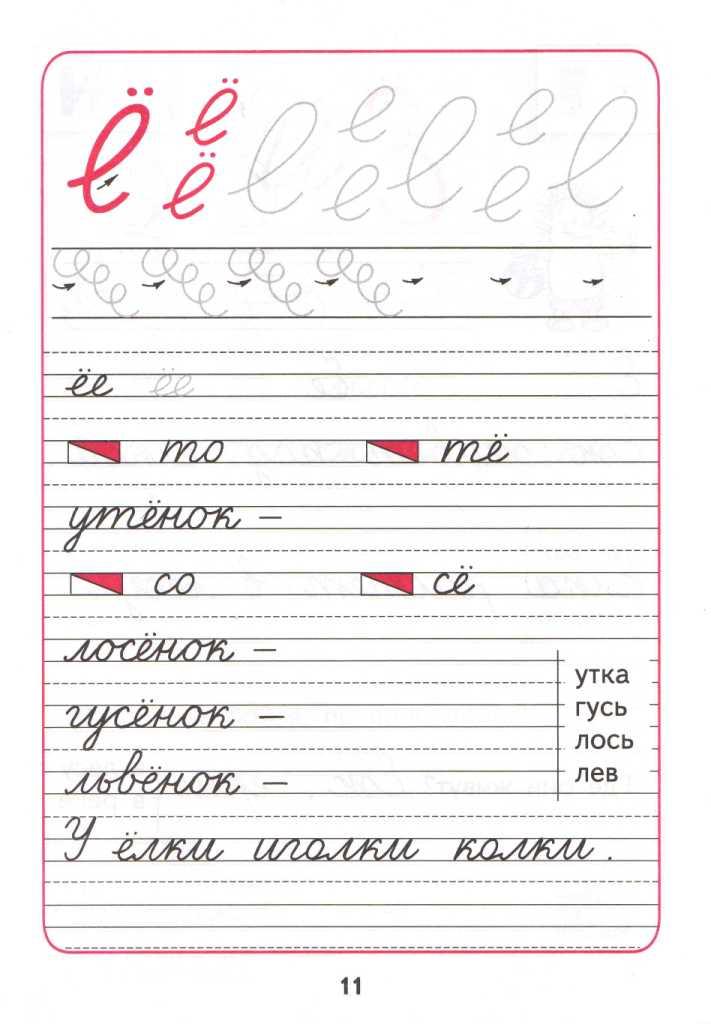 ё ё ё е е е е е е е
ёе ёе
то тё
утёнок –
со сё
лосёнок –
гусёнок –
львёнок –
утка
гусь
лось
лев
У ёлки иголки колки.
11